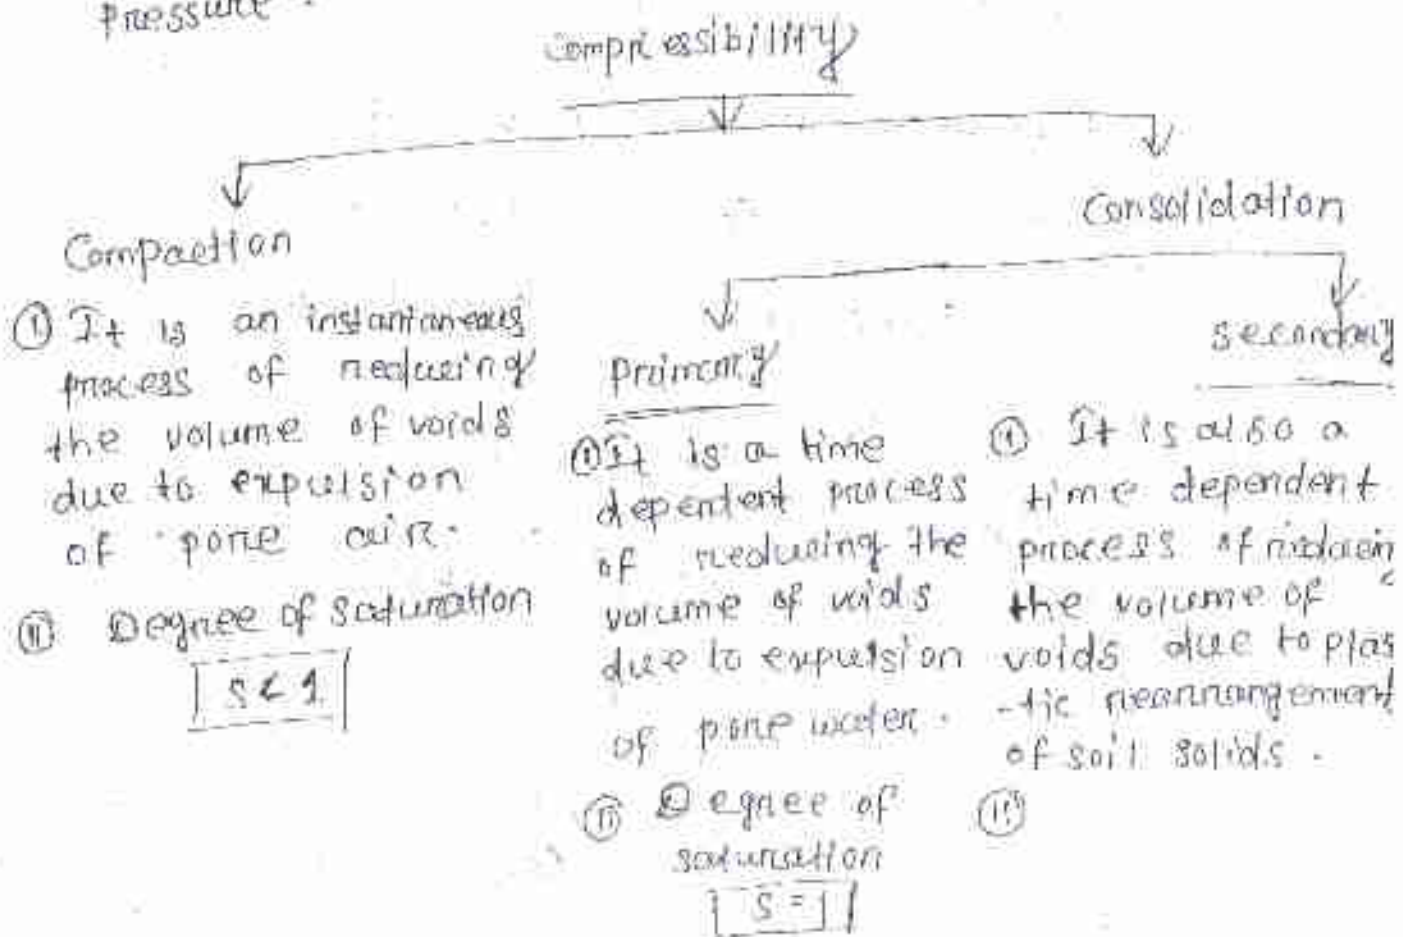 Pressure.
Compressibility
Compaction
Consolidation
① It is an instantaneous
process of reducing
the volume of voids
due to expulsion
of pore air.
⑪ Degree of saturation
S < 1
primary
① It is a time
dependent process
of reducing the
volume of voids
due to expulsion
of pore water.
⑪ Degree of
saturation
S = 1
secondary
① It is also a
time dependent
process of reducin
the volume of
voids due to plas
-tic rearrangement
of soil solids.
⑪